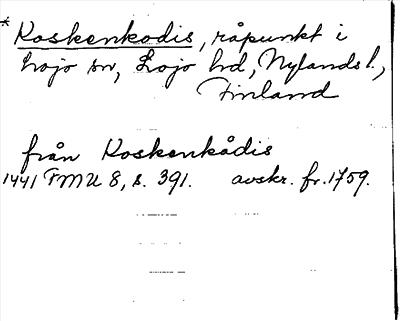 * Koskenkodis, råpunkt i
Lojo sn, Lojo hd, Nylands l.,
Finland
från Koskenkådis
1441 FMU 8, s. 391. avskr. fr. 1759.